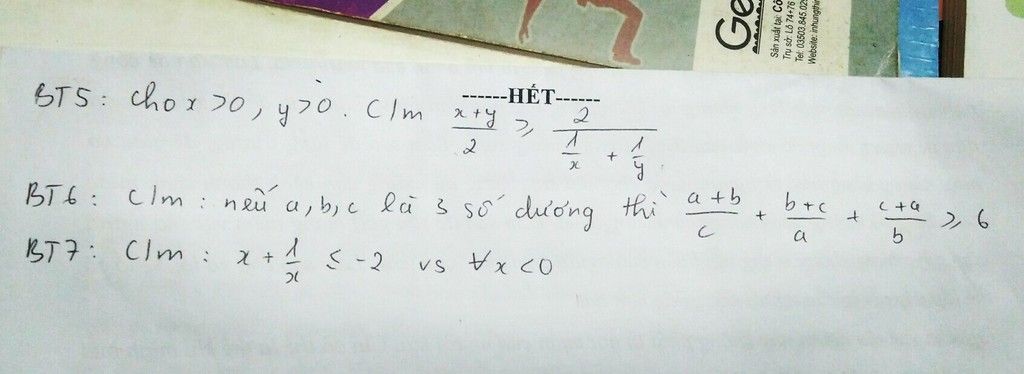 Ge
Sản xuất tại: Cô
Trụ sở: Lô 74+76
Tel: 03503.845.029
Website: inhungthin
------HẾT------
BT5: Cho x > 0, y > 0. C/m \frac{x+y}{2} ≥ \frac{2}{\frac{1}{x} + \frac{1}{y}}
BT6: C/m: nếu a, b, c là 3 số dương thì \frac{a+b}{c} + \frac{b+c}{a} + \frac{c+a}{b} ≥ 6
BT7: C/m: x + \frac{1}{x} ≤ -2 vs ∀x < 0